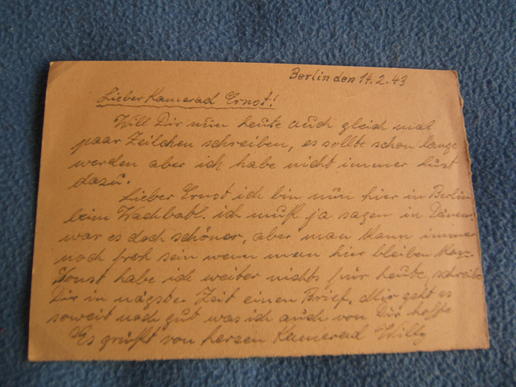 Berlin den 14.2.43
Lieber Kamerad Ernst!
Will Dir nun heute auch gleich mal
paar Zeilchen schreiben, es sollte schon lange
werden aber ich habe nicht immer Lust
dazu.
Lieber Ernst ich bin nun hier in Berlin
beim Wachbatl. ich muß ja sagen in
war es doch schöner, aber man kann immer
noch froh sein wenn man hier bleiben kan-
Sonst habe ich weiter nichts für heute, schreibe
Dir in nägster Zeit einen Brief, Mir geht es
soweit noch gut was ich auch von Dir hoffe
Es grüßt von herzen Kamerad Willy